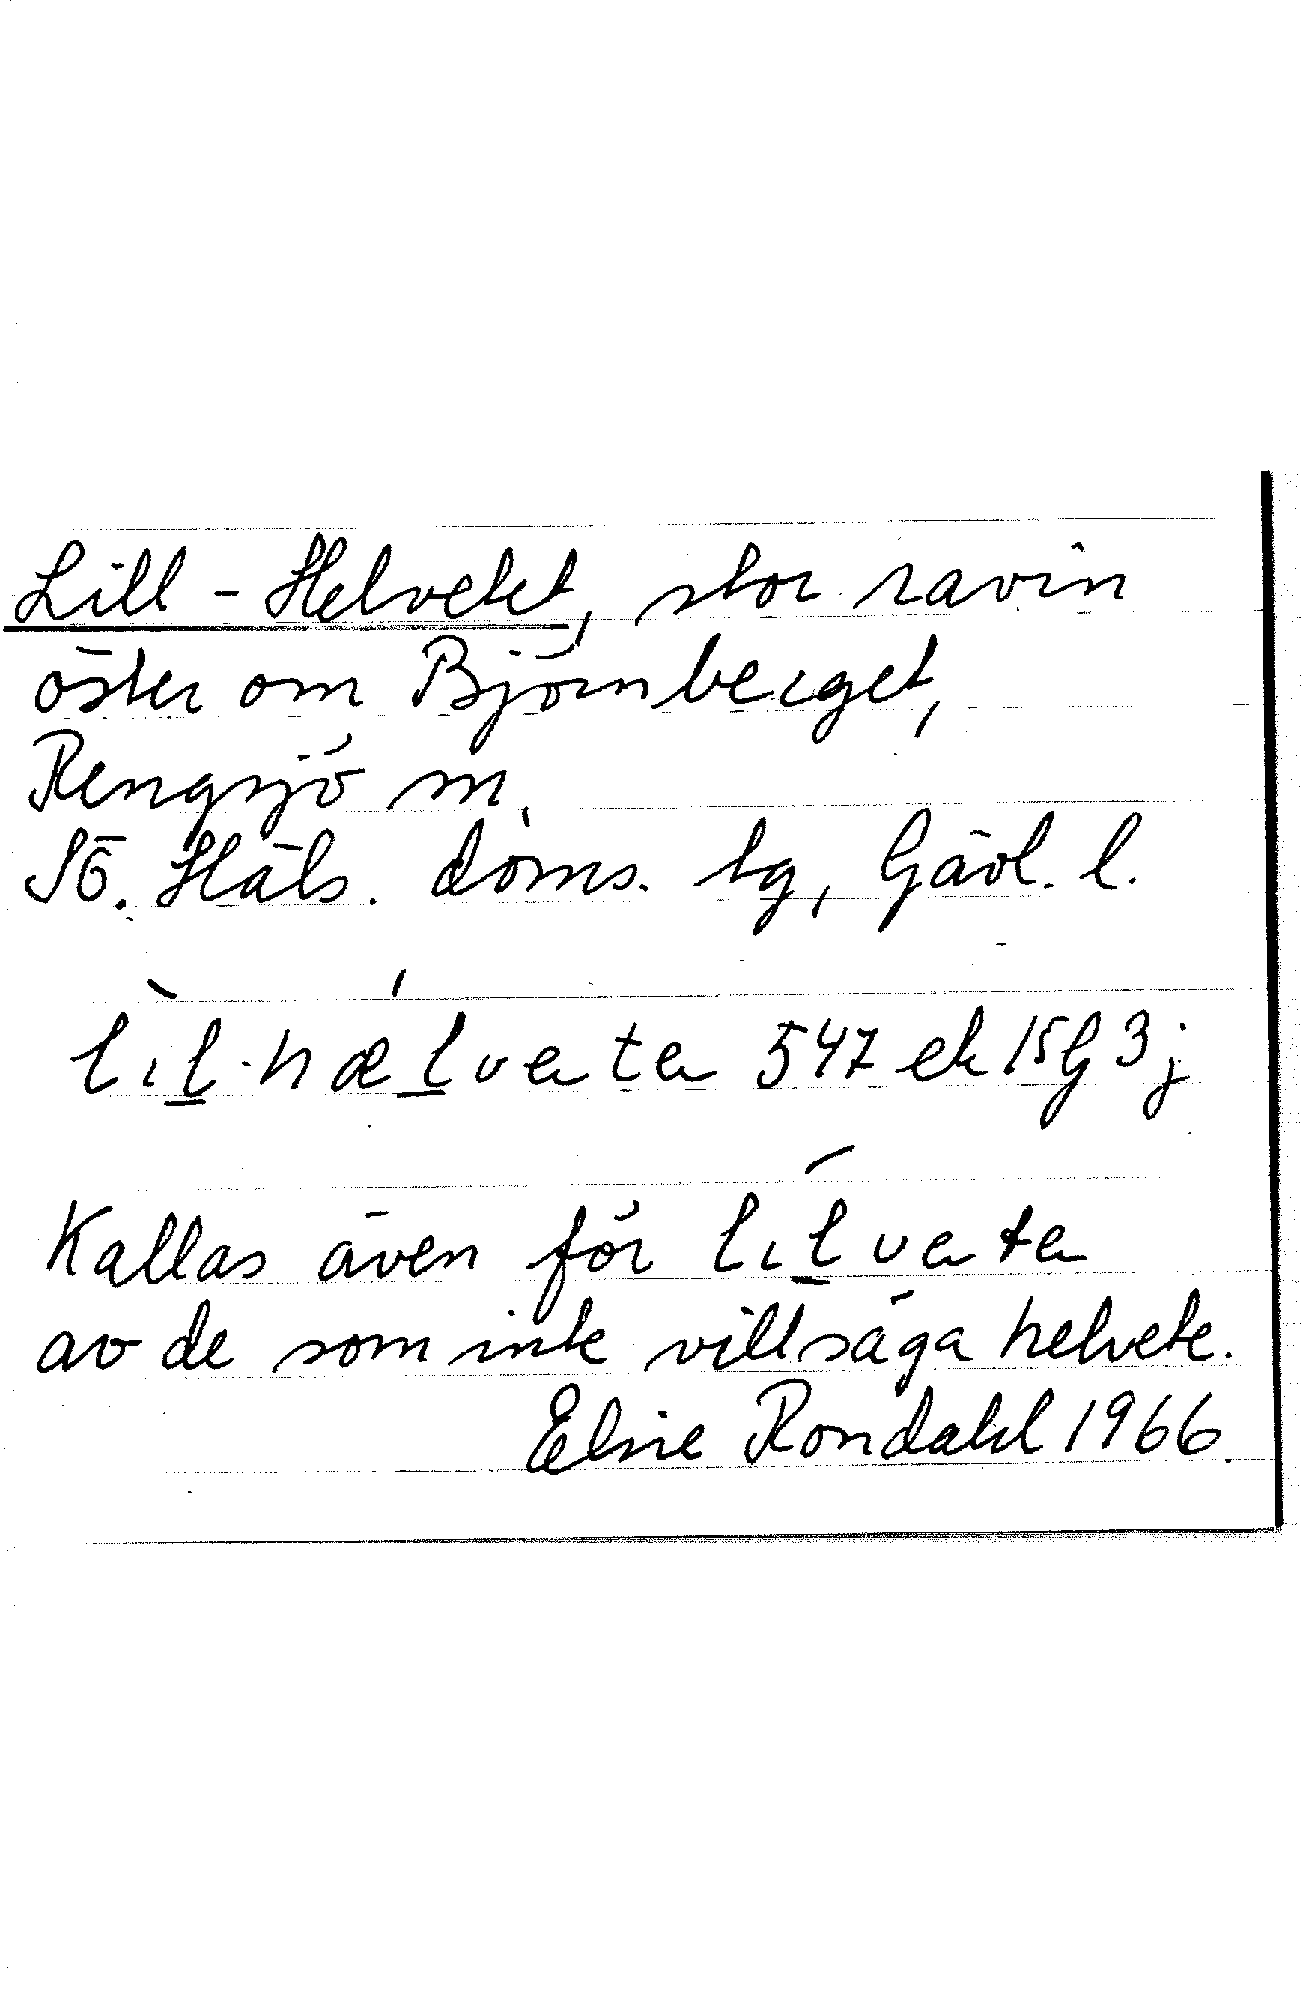 Lill-Helvetet, stor ravin
öster om Björnberget,
Rengsjö m.
Sö. Häls. doms. tg, Gävl. l.
lìl·hǽlvata 547 ek 15G 3j
Kallas även för líl̲vata
av de som inte vill säga helvete.
Elsie Rondahl 1966.